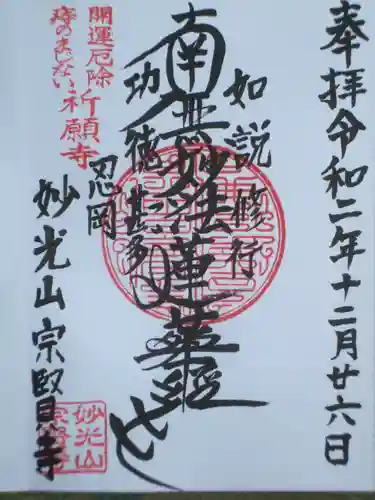 奉拝令和二年十二月廿六日
如説修行
南無妙法蓮華経
功徳甚多
忍岡
開運厄除
痔のまじない祈願寺
妙光山宗賢寺
妙光山
宗賢寺